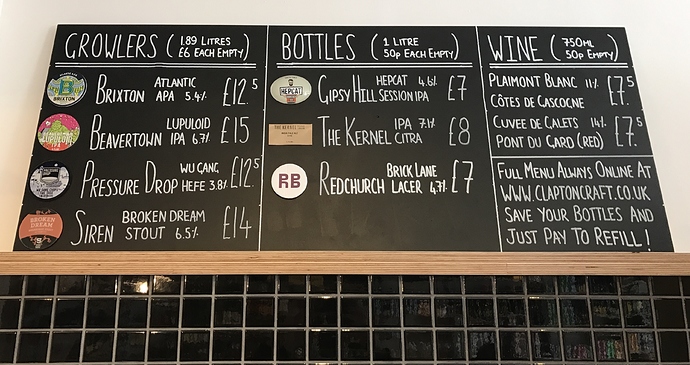 GROWLERS (1.89 LITRES
£6 EACH EMPTY)
BRIXTON
BRIXTON ATLANTIC
APA 5.4% £12.5
LUPULOID
IPA
BEAVERTOWN LUPULOID
IPA 6.7% £15
PRESSURE DROP WU GANG
HEFE 3.8% £12.5
BROKEN
DREAM
SIREN BROKEN DREAM
STOUT 6.5% £14
BOTTLES (1 LITRE
50p EACH EMPTY)
HEPCAT
GIPSY HILL HEPCAT 4.6%
SESSION IPA £7
THE KERNEL
THE KERNEL IPA 7.1%
CITRA £8
RB
REDCHURCH BRICK LANE
LAGER 4.7% £7
WINE (750ML
50p EMPTY)
PLAIMONT BLANC 11% £7.5
CÔTES DE GASCOGNE
CUVEE DE GALETS 14% £7.5
PONT DU GARD (RED)
FULL MENU ALWAYS ONLINE AT
WWW.CLAPTONCRAFT.CO.UK
SAVE YOUR BOTTLES AND
JUST PAY TO REFILL!